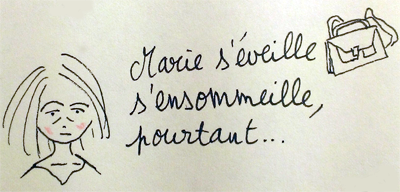 Marie s'éveille
s'ensommeille,
pourtant...